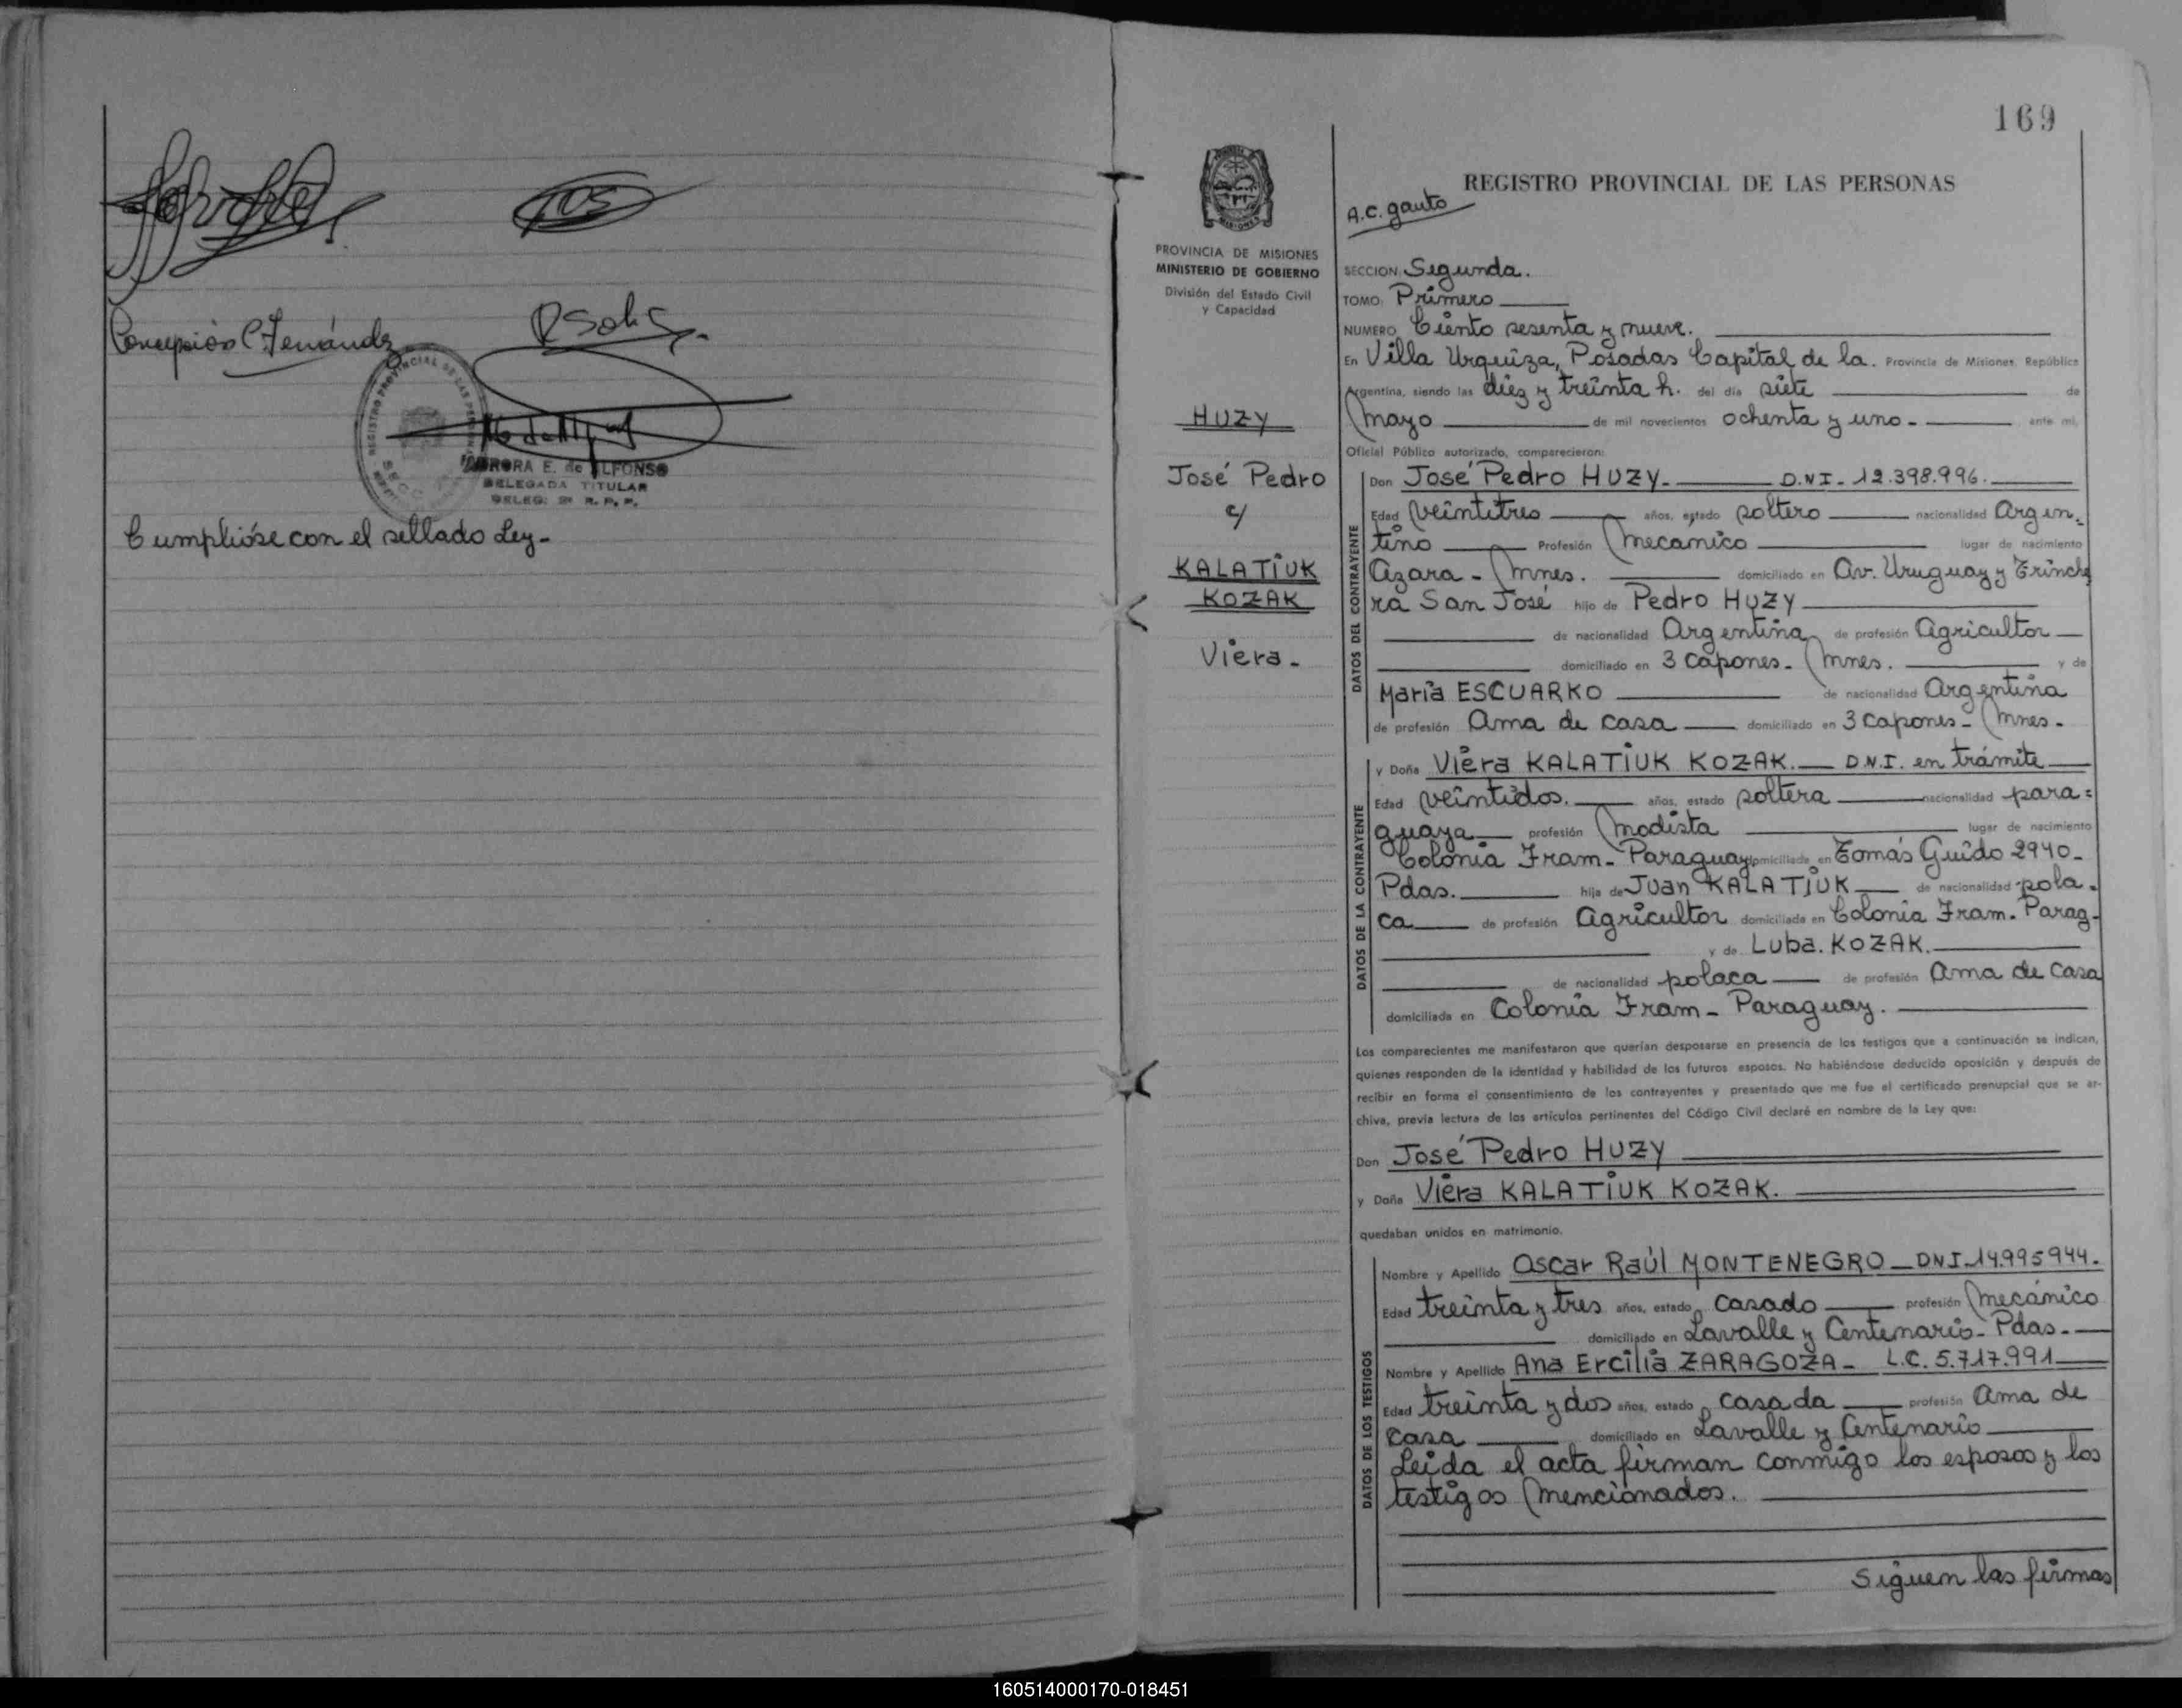 Concepción C. Fernández
REGISTRO PROVINCIAL DE LAS PERSONAS
AURORA E. de ALFONSO
DELEGADA TITULAR
DELEG. 2ª R. P. P.
Cumplióse con el sellado Ley-
169
PROVINCIA DE MISIONES
MINISTERIO DE GOBIERNO
División del Estado Civil
y Capacidad
HUZY
José Pedro
c/
KALATIUK
KOZAK
Viera.
REGISTRO PROVINCIAL DE LAS PERSONAS
A.C. gauto
SECCION: Segunda.
TOMO: Primero
NUMERO Ciento sesenta y nueve.
En Villa Urquiza, Posadas Capital de la. Provincia de Misiones, República
Argentina, siendo las diez y treinta h. del día siete de
mayo de mil novecientos ochenta y uno- ante mí,
Oficial Público autorizado, comparecieron:
DATOS DEL CONTRAYENTE
Don José Pedro HUZY- D.N.I- 12.398.996.
Edad veintitres años, estado soltero nacionalidad Argen-
tino Profesión mecanico lugar de nacimiento
Azara - Mnes. domiciliado en Av. Uruguay y Trinche
ra San José hijo de Pedro HUZY
de nacionalidad Argentina de profesión Agricultor
domiciliado en 3 Capones- Mnes. y de
María ESCUARKO de nacionalidad Argentina
de profesión Ama de casa domiciliado en 3 Capones- Mnes.
DATOS DE LA CONTRAYENTE
y Doña Viera KALATIUK KOZAK. D.N.I. en trámite
Edad veintidos. años, estado soltera nacionalidad para=
guaya profesión modista lugar de nacimiento
Colonia Fram- Paraguay domiciliada en Tomás Guido 2940-
Pdas. hija de Juan KALATIUK de nacionalidad pola-
ca de profesión Agricultor domiciliada en Colonia Fram- Parag-
y de Luba. KOZAK.
de nacionalidad polaca de profesión Ama de casa
domiciliada en Colonia Fram- Paraguay.
Los comparecientes me manifestaron que querían desposarse en presencia de los testigos que a continuación se indican,
quienes responden de la identidad y habilidad de los futuros esposos. No habiéndose deducido oposición y después de
recibir en forma el consentimiento de los contrayentes y presentado que me fue el certificado prenupcial que se ar-
chiva, previa lectura de los artículos pertinentes del Código Civil declaré en nombre de la Ley que:
Don José Pedro HUZY
y Doña Viera KALATIUK KOZAK.
quedaban unidos en matrimonio.
DATOS DE LOS TESTIGOS
Nombre y Apellido Oscar Raúl MONTENEGRO - DNI-14.995944.
Edad treinta y tres años, estado casado profesión mecánico
domiciliado en Lavalle y Centenario- Pdas-
Nombre y Apellido Ana Ercilia ZARAGOZA- L.C. 5.717.991
Edad treinta y dos años, estado casada profesión Ama de
casa domiciliado en Lavalle y Centenario
Leida el acta firman conmigo los esposos y los
testigos mencionados.
Siguen las firmas
160514000170-018451